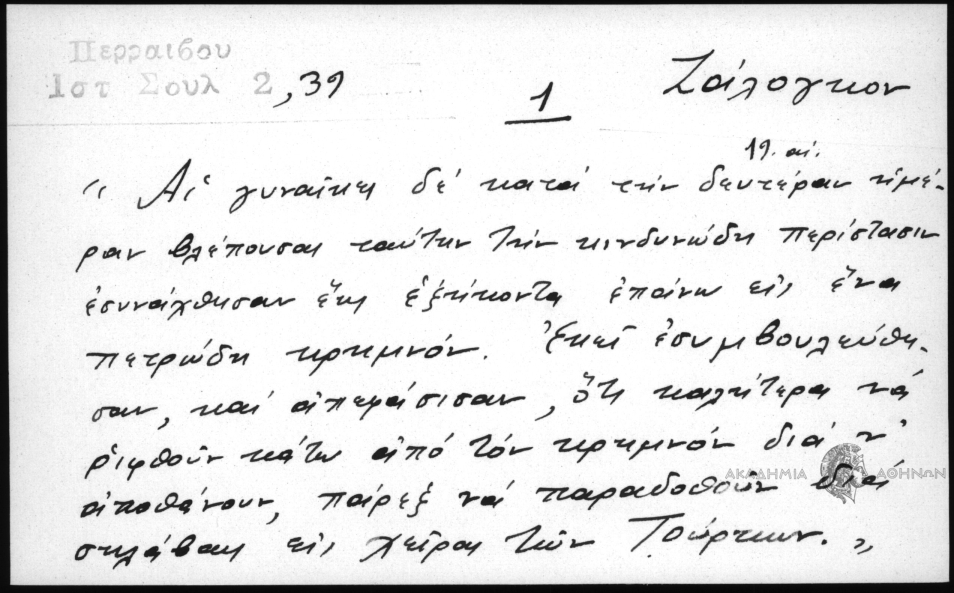 Περραιβου
Ιστ Σουλ 2, 39
1
Ζάλογκον
19. αἰ.
“ Αἱ γυναῖκες δέ κατά τήν δευτέραν ἡμέ-
ραν βλέπουσαι ταύτην τήν κινδυνώδη περίστασιν
ἐσυνάχθησαν ἕως ἑξήκοντα ἐπάνω εἰς ἕνα
πετρώδη κρημνόν. Ἐκεῖ ἐσυμβουλεύθη-
σαν, καί ἀπεφάσισαν, ὅτι καλήτερα νά
ῥιφθοῦν κάτω ἀπό τόν κρημνόν διά ν'
ἀποθάνουν, πάρεξ νά παραδοθοῦν διά
σκλάβαις εἰς χεῖρας τῶν Τούρκων. „
ΑΚΑΔΗΜΙΑ ΑΘΗΝΩΝ